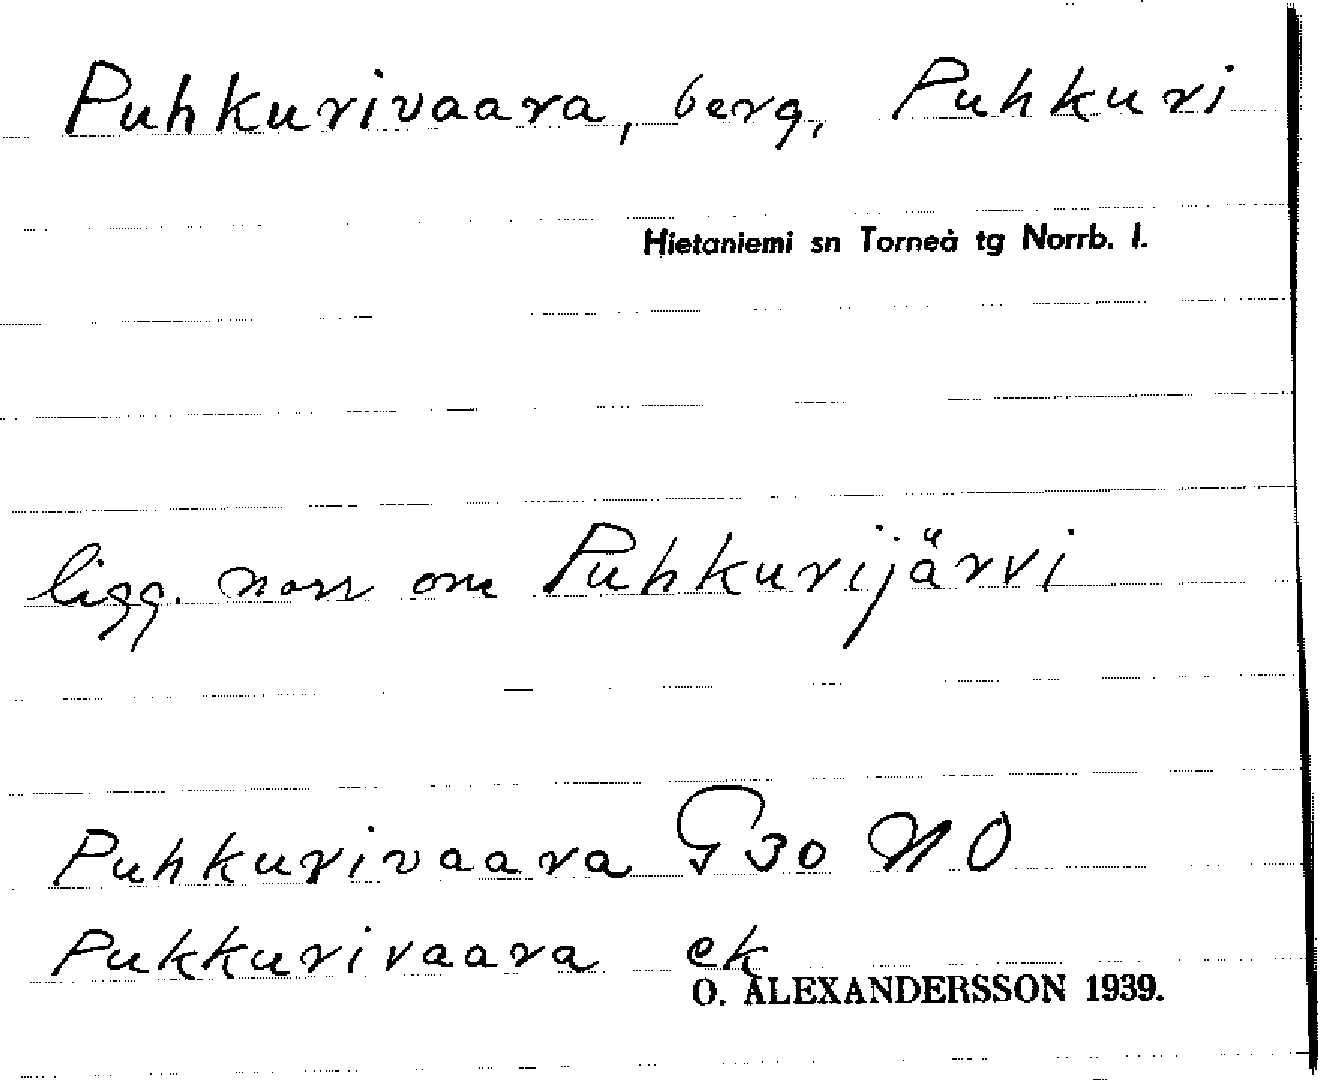 Puhkurivaara, berg, Puhkuri
Hietaniemi sn Torneå tg Norrb. l.
ligg. norr om Puhkurijärvi
Puhkurivaara G 30 NO
Pukkurivaara ek
O. ALEXANDERSSON 1939.